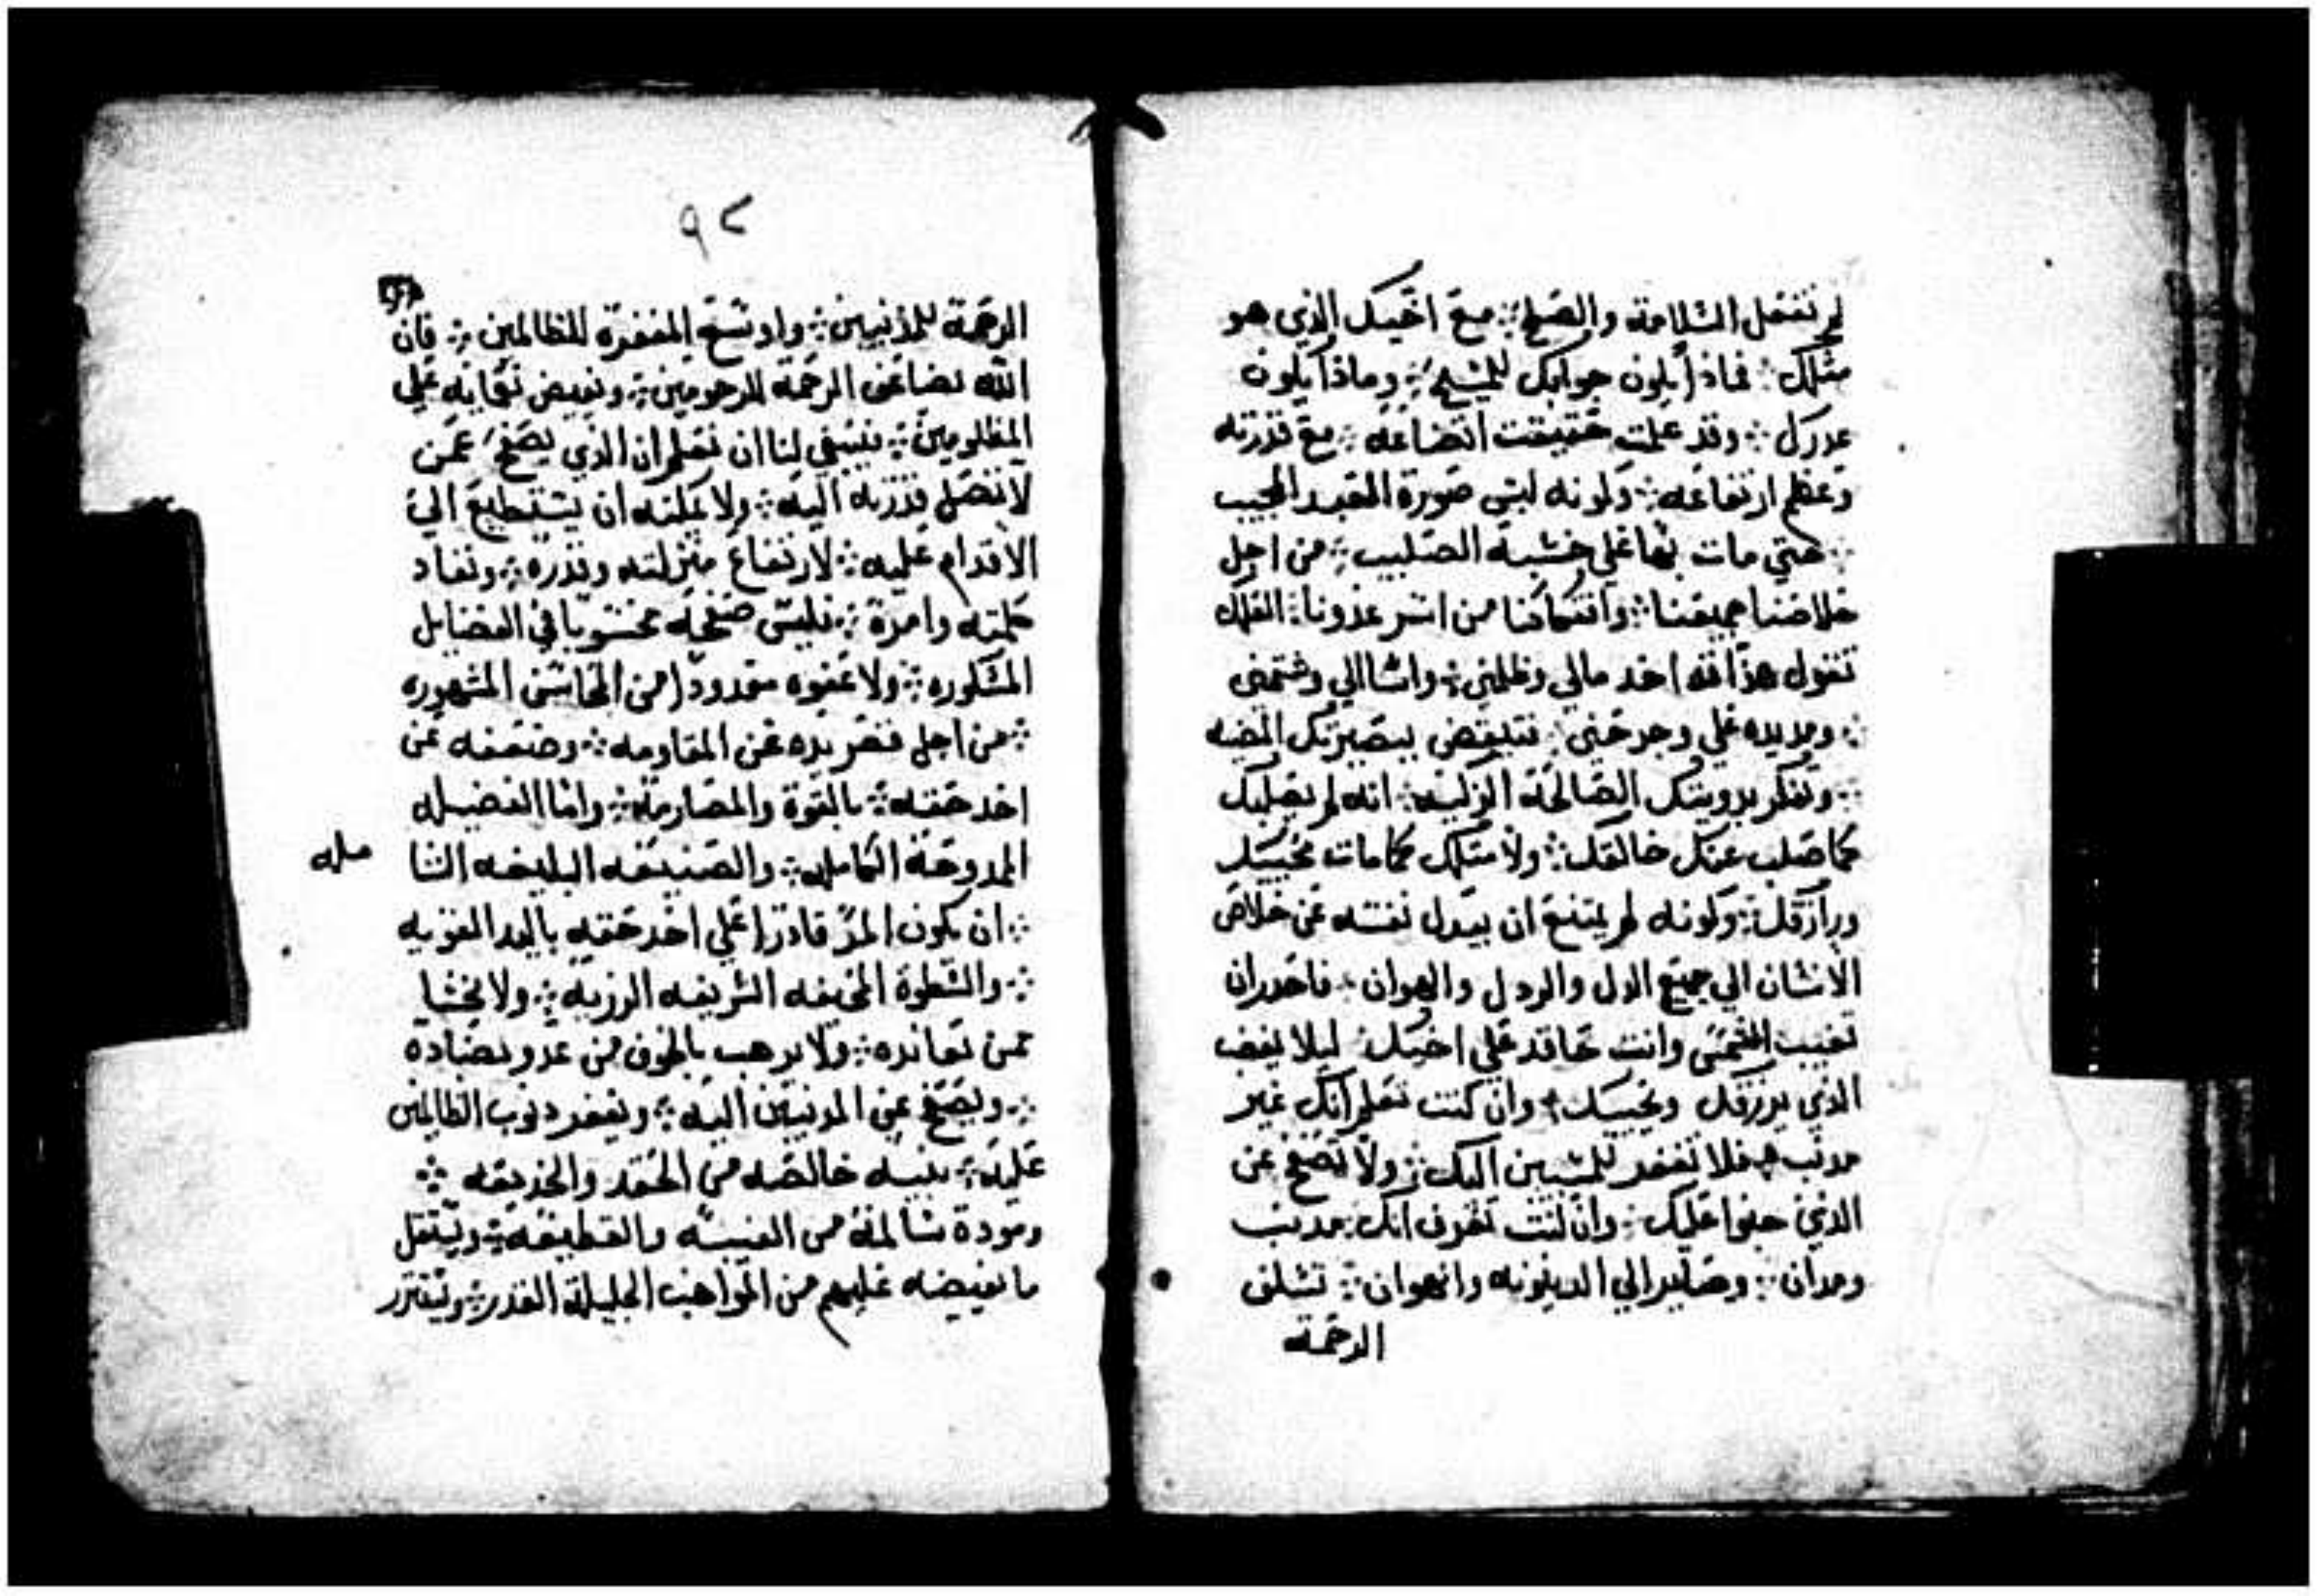 لم تفعل السلامة والصلح ܀ مع اخيك الذي هو
مثلك ܀ فماذا يكون جوابك للمسيح ܀ وماذا يكون
عدرك ܀ وقد علمت حقيقت اتضاعه ܀ مع قدرته
وعظم ارتفاعه ܀ وكونه لبس صورة العبد
܀ حتي مات بها علي خشبة الصليب ܀ من اجل
خلاصنا جميعنا ܀ وانعتاقنا من اسر عدونا ܀ العلك
تقول هذا انه اخد مالي وظلمني ܀ واسا الي وشتمني
܀ ومد يده علي وجرحني ܀ ببصيرتك المضيه
܀ وتفكر برويتك الصالحة الزكيه ܀ انه لم يصلبك
كما صلب عنك خالقك ܀ ولا مثلك كما مات محييك
ورازقك ܀ وكونه لم يمتنع ان يبدل نفسه عن خلاص
الانسان الي جميع الدل والردل والهوان ܀ فاحدر ان
تغيب الشمس وانت حاقد علي اخيك ܀ ليلا يغضب
الذي يرزقك ويحييك ܀ وان كنت تعلم انك غير
مدنب ܀ فلا تغفر للمسيين اليك ܀ ولا تصفح عن
الذين جنوا عليك ܀ وان كنت تعرف انك مدنب
ومدان ܀ وصاير الي الدينونه والهوان ܀
الرحمة
٩٢
الرحمة للمذنبين ܀ واوسع المغفرة للظالمين ܀ فان
الله يضاعف الرحمة للرحومين ܀ ويفيض علي
المظلومين ܀ ينبغي لنا ان نعلم ان الذي يصفح عمن
لا تصل قدرته اليه ܀ ولا يمكنه ان يستطيع الي
الاقدام عليه ܀ لارتفاع منزلته وقدره ܀ ونفاد
كلمته وامرة ܀ فليس صفحه محسوبا في الفضايل
المشكوره ܀ ولا عفوه معدودا من المحاسن المشهوره
܀ من اجل قصر يده عن المقاومه ܀ وضعفه عن
اخد حقه ܀ بالقوة والمصارمة ܀ واما الفضيله
الممدوحة الكامله ܀ والصنيعه البليغه الشا مله
܀ ان يكون المر قادرا علي اخد حقه باليد القويه
܀ والسطوة المخيفه الشريفه ܀ ولا يخشا
ممن يعانده ܀ ولا يرهب بالخوف من عدو يضادة
܀ ويصفح عن المدنبين اليه ܀ ويغفر دنوب الظالمين
عليه ܀ بنيه خالصه من الحقد والخديعه ܀
ومودة سالمة من الغيبه والقطيعه ܀
ما يفيضه عليهم من المواهب الجليلة القدر ܀